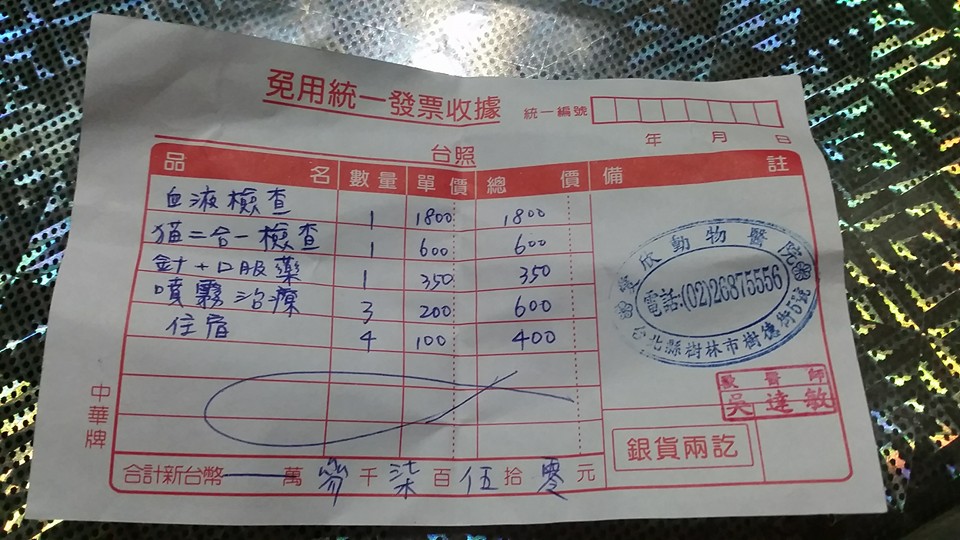 免用統一發票收據
統一編號
年 月 日
台照
品名 數量 單價 總價 備註
血液檢查 1 1800 1800
猫二合一檢查 1 600 600
針+口服藥 1 350 350
噴霧治療 3 200 600
住宿 4 100 400
欣動物醫院
電話:(02)26875556
台北縣樹林市樹德街 號
獸醫師
吳達敏
中華牌
銀貨兩訖
合計新台幣 萬 參 千 柒 百 伍 拾 零 元